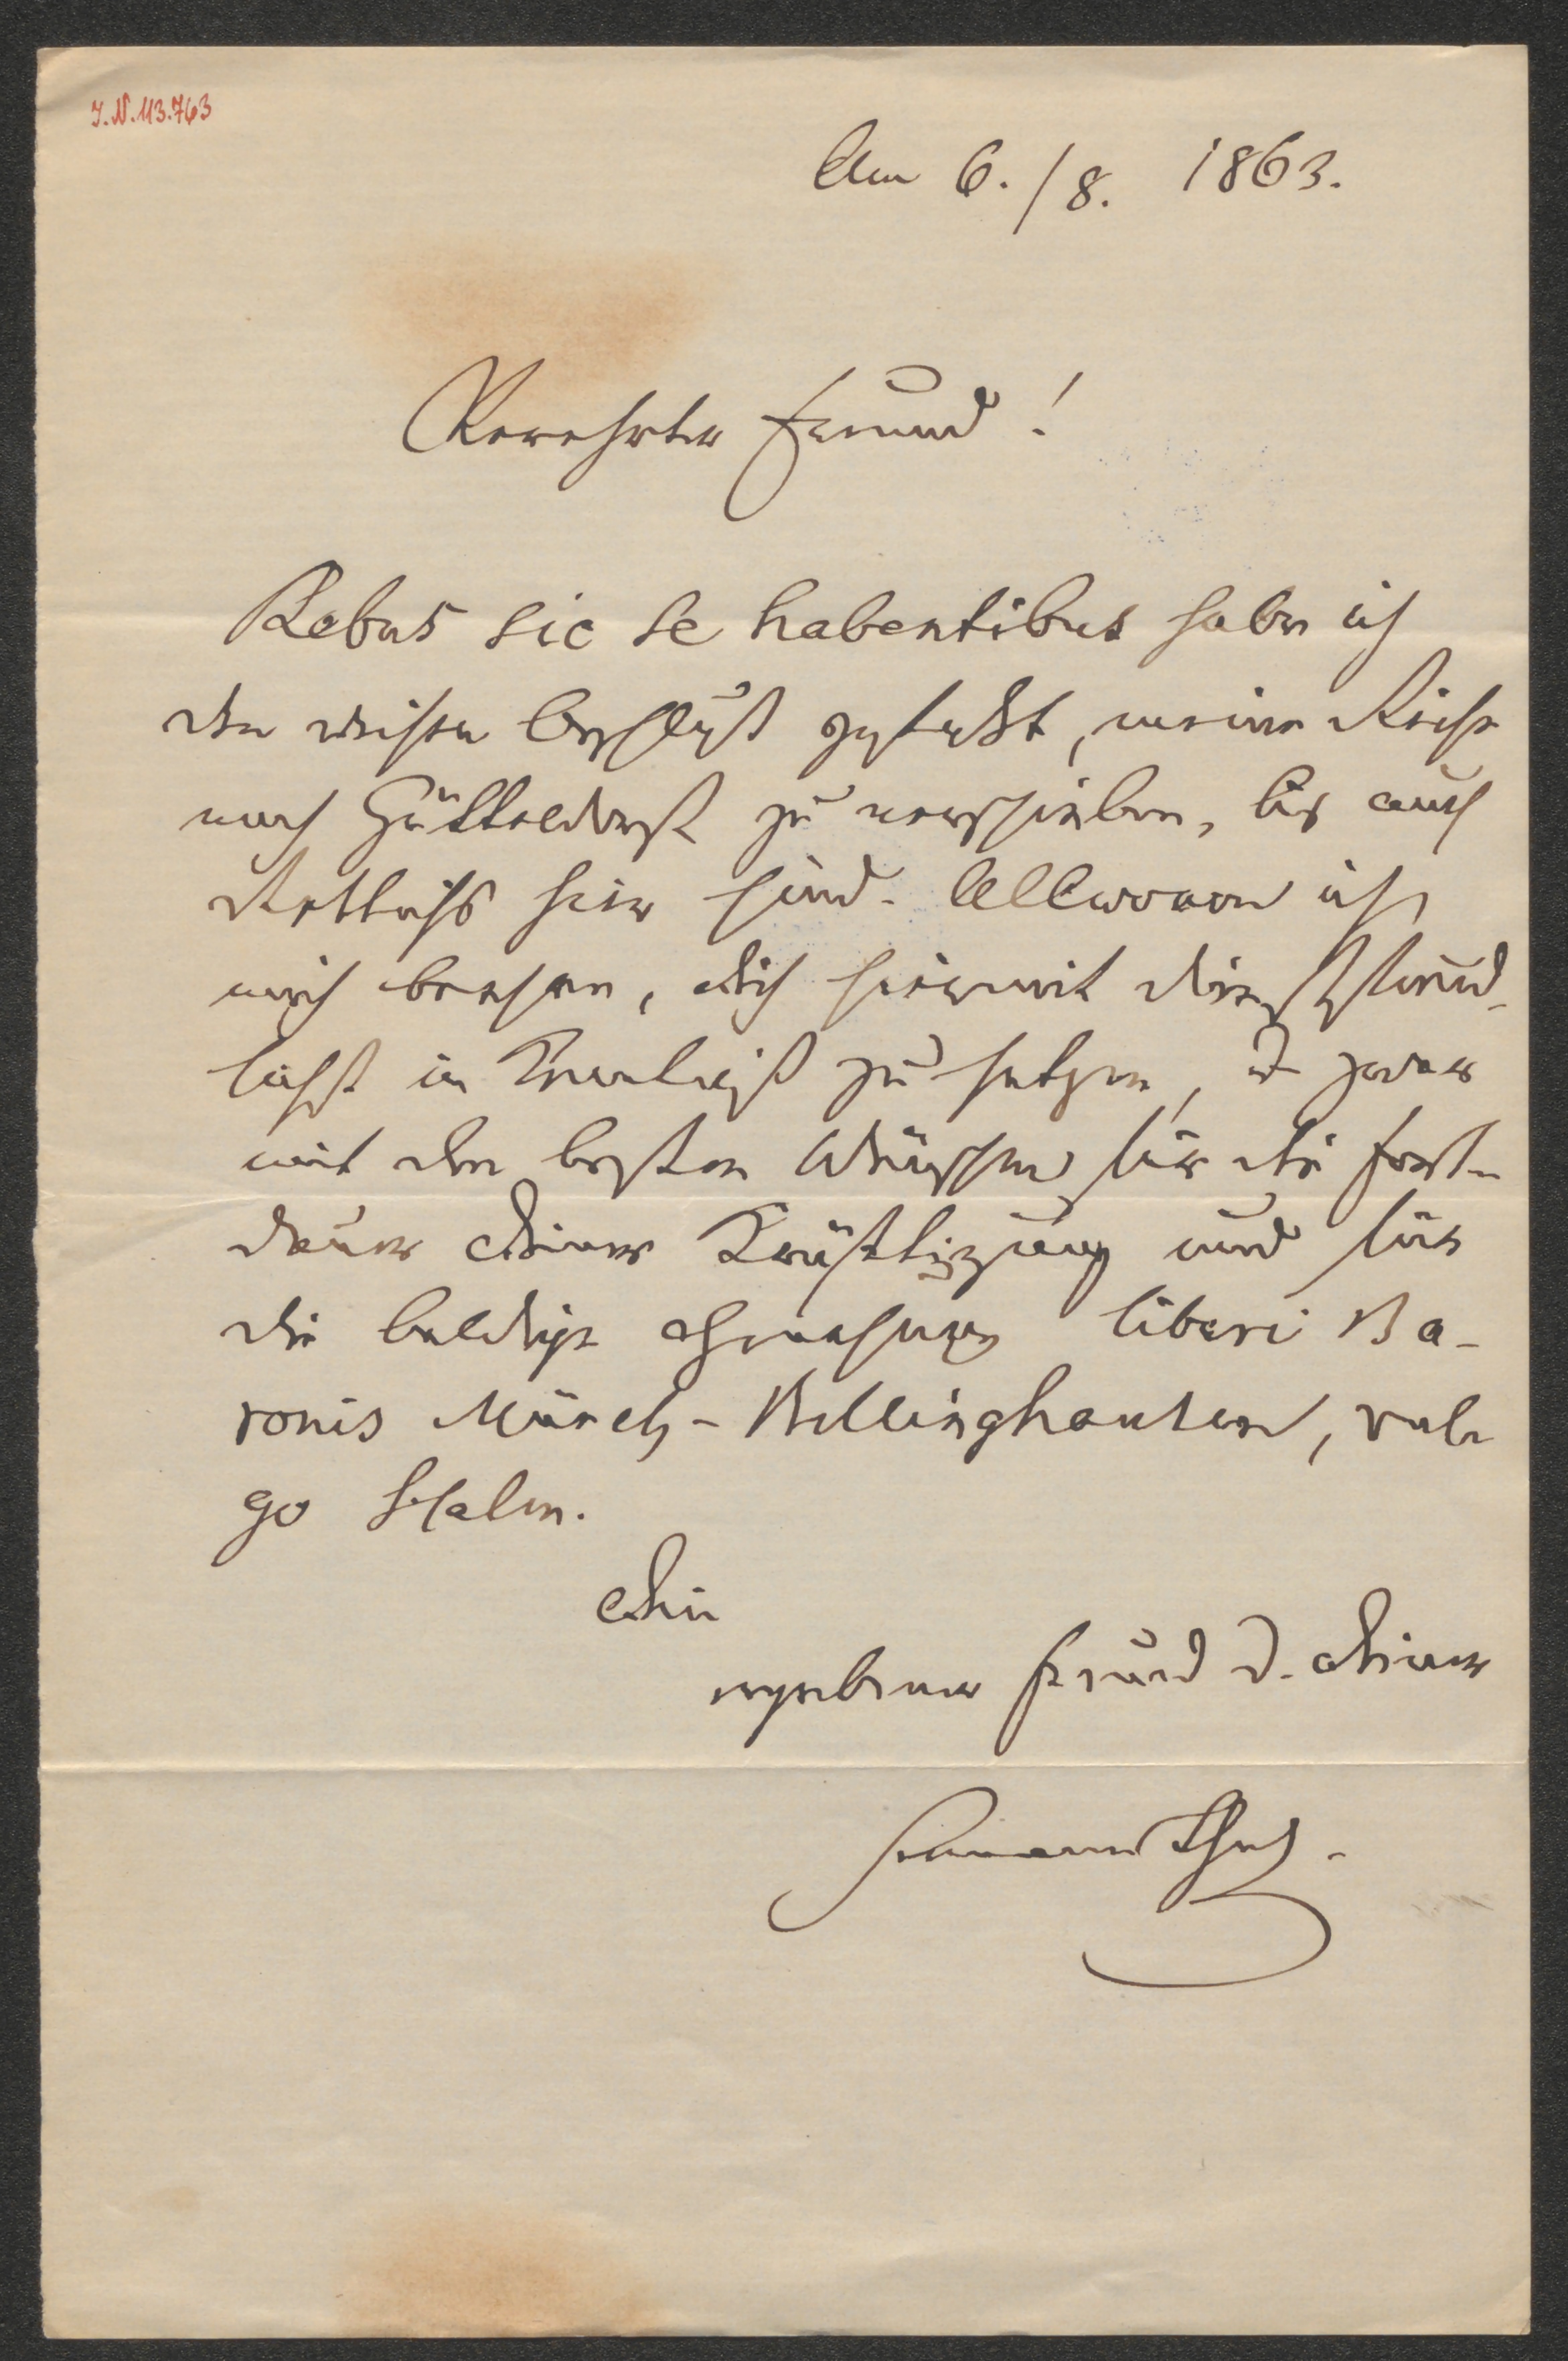 I.N.113.763
Am 6./8. 1863.
Verehrter Freund!
Rebus sic se habentibus habe ich
den weisen Beschluß gefaßt, meine Reise
nach Hütteldorf zu verschieben, bis auch
hier sind. ich
mich beehre, Dich hiermit dienstfreund-
lichst in Kenntniß zu setzen, u. zwar
mit den besten Wünschen für die Fort-
dauer Deiner Kräftigung und für
die baldige Genesung liberi Ba-
ronis Münch-Bellinghausen, vul-
go Halm.
Dein
ergebener Freund u. Diener